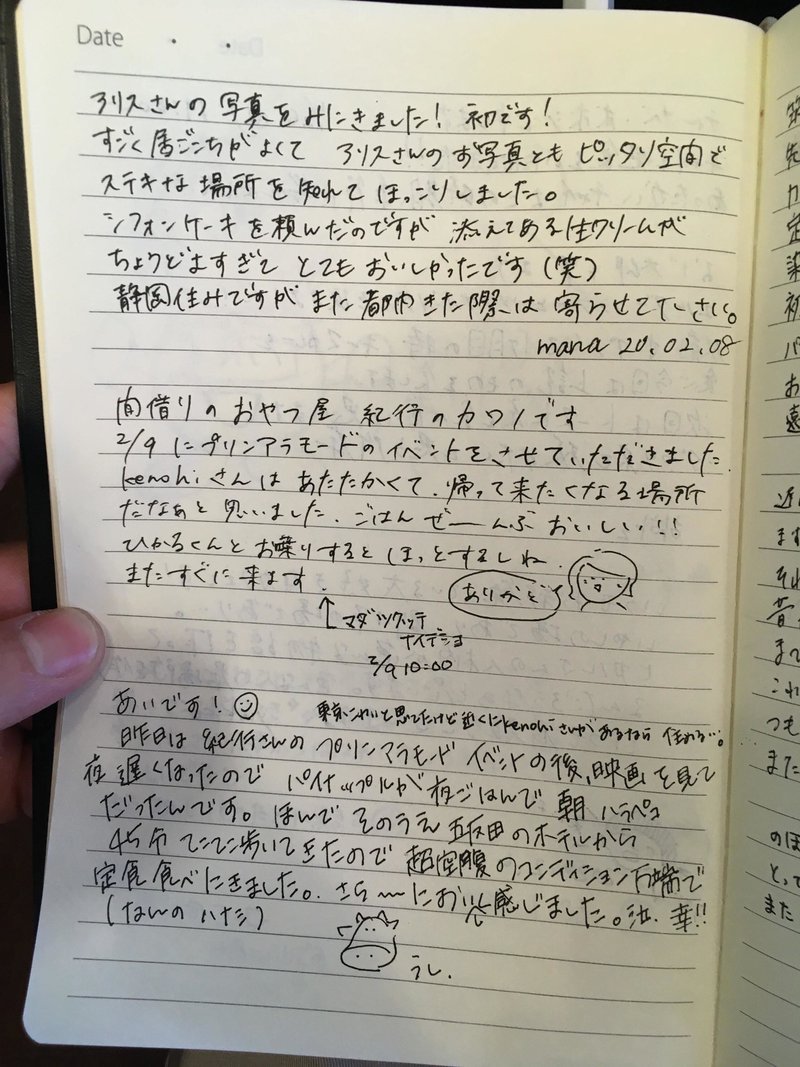 Date
アリスさんの写真をみにきました！ 初です！
すごく居ごこちがよくて アリスさんのお写真ともピッタリ空間で
ステキな場所を知れてほっこりしました。
シフォンケーキを頼んだのですが 添えてある生クリームが
ちょうどよすぎて とてもおいしかったです（笑）
静岡住みですが また都内きた際は寄らせて下さい。
mana 20.02.08
間借りのおやつ屋 紀行のカワノです
2/9にプリンアラモードのイベントをさせていただきました.
kenohiさんはあたたかくて、帰って来たくなる場所
だなぁと思いました. ごはんぜーんぶおいしい!!
ひかるくんとお喋りするとほっとするしね.
またすぐに来ます.
ありがと
↑マダックッテ
ナイデショ
2/9 10:00
あいです！
東京こわいと思てたけど近くにkenohiさんがあるなら住める…。
昨日は紀行さんのプリンアラモードイベントの後、映画を見て
夜遅くなったのでパイナップルが夜ごはんで朝ハラペコ
だったんです。ほんでそのうえ五反田のホテルから
45分てこてこ歩いてきたので超空腹のコンディション万端で
定食食べにきました。さら〜においしく感じました。幸!!
（なんのハナシ）
うし.